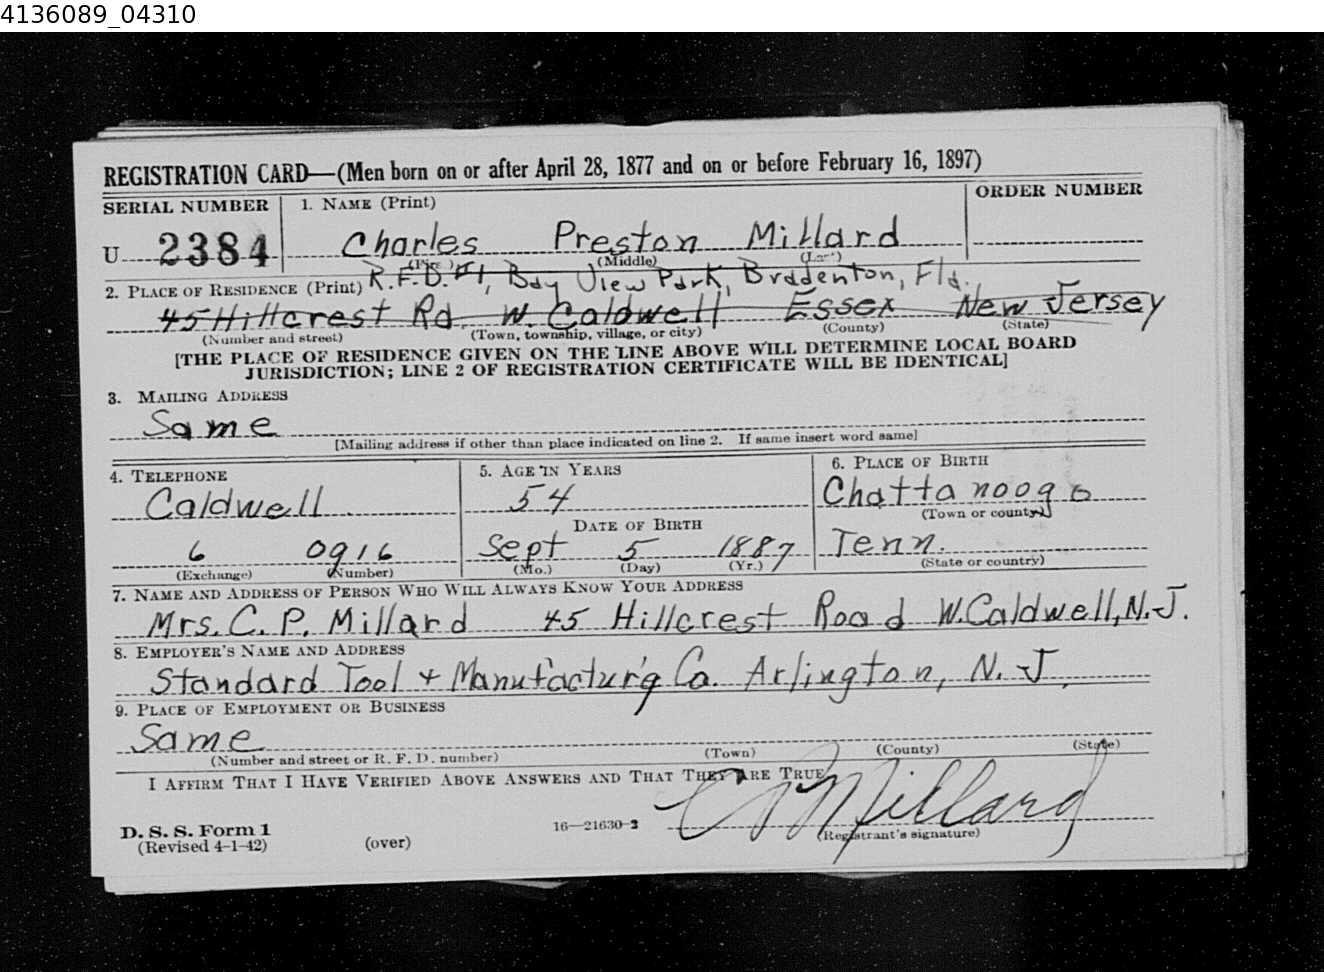 4136089_04310
REGISTRATION CARD—(Men born on or after April 28, 1877 and on or before February 16, 1897)
SERIAL NUMBER 1. NAME (Print) ORDER NUMBER
U 2384 Charles Preston Millard
(First) (Middle) (Last)
R.F.D. #1, Bay View Park, Bradenton, Fla.
2. PLACE OF RESIDENCE (Print)
45 Hillcrest Rd. W. Caldwell Essex New Jersey
(Number and street) (Town, township, village, or city) (County) (State)
[THE PLACE OF RESIDENCE GIVEN ON THE LINE ABOVE WILL DETERMINE LOCAL BOARD
JURISDICTION; LINE 2 OF REGISTRATION CERTIFICATE WILL BE IDENTICAL]
3. MAILING ADDRESS
Same
[Mailing address if other than place indicated on line 2. If same insert word same]
4. TELEPHONE 5. AGE IN YEARS 6. PLACE OF BIRTH
Caldwell 54 Chattanooga
DATE OF BIRTH (Town or county)
6 0916 Sept 5 1887 Tenn.
(Exchange) (Number) (Mo.) (Day) (Yr.) (State or country)
7. NAME AND ADDRESS OF PERSON WHO WILL ALWAYS KNOW YOUR ADDRESS
Mrs. C. P. Millard 45 Hillcrest Road W. Caldwell, N.J.
8. EMPLOYER'S NAME AND ADDRESS
Standard Tool + Manufactur'g Co. Arlington, N. J.
9. PLACE OF EMPLOYMENT OR BUSINESS
Same
(Number and street or R. F. D. number) (Town) (County) (State)
I AFFIRM THAT I HAVE VERIFIED ABOVE ANSWERS AND THAT THEY ARE TRUE.
C P Millard
D. S. S. Form 1
(Revised 4-1-42) (over) 16—21630-2 (Registrant's signature)